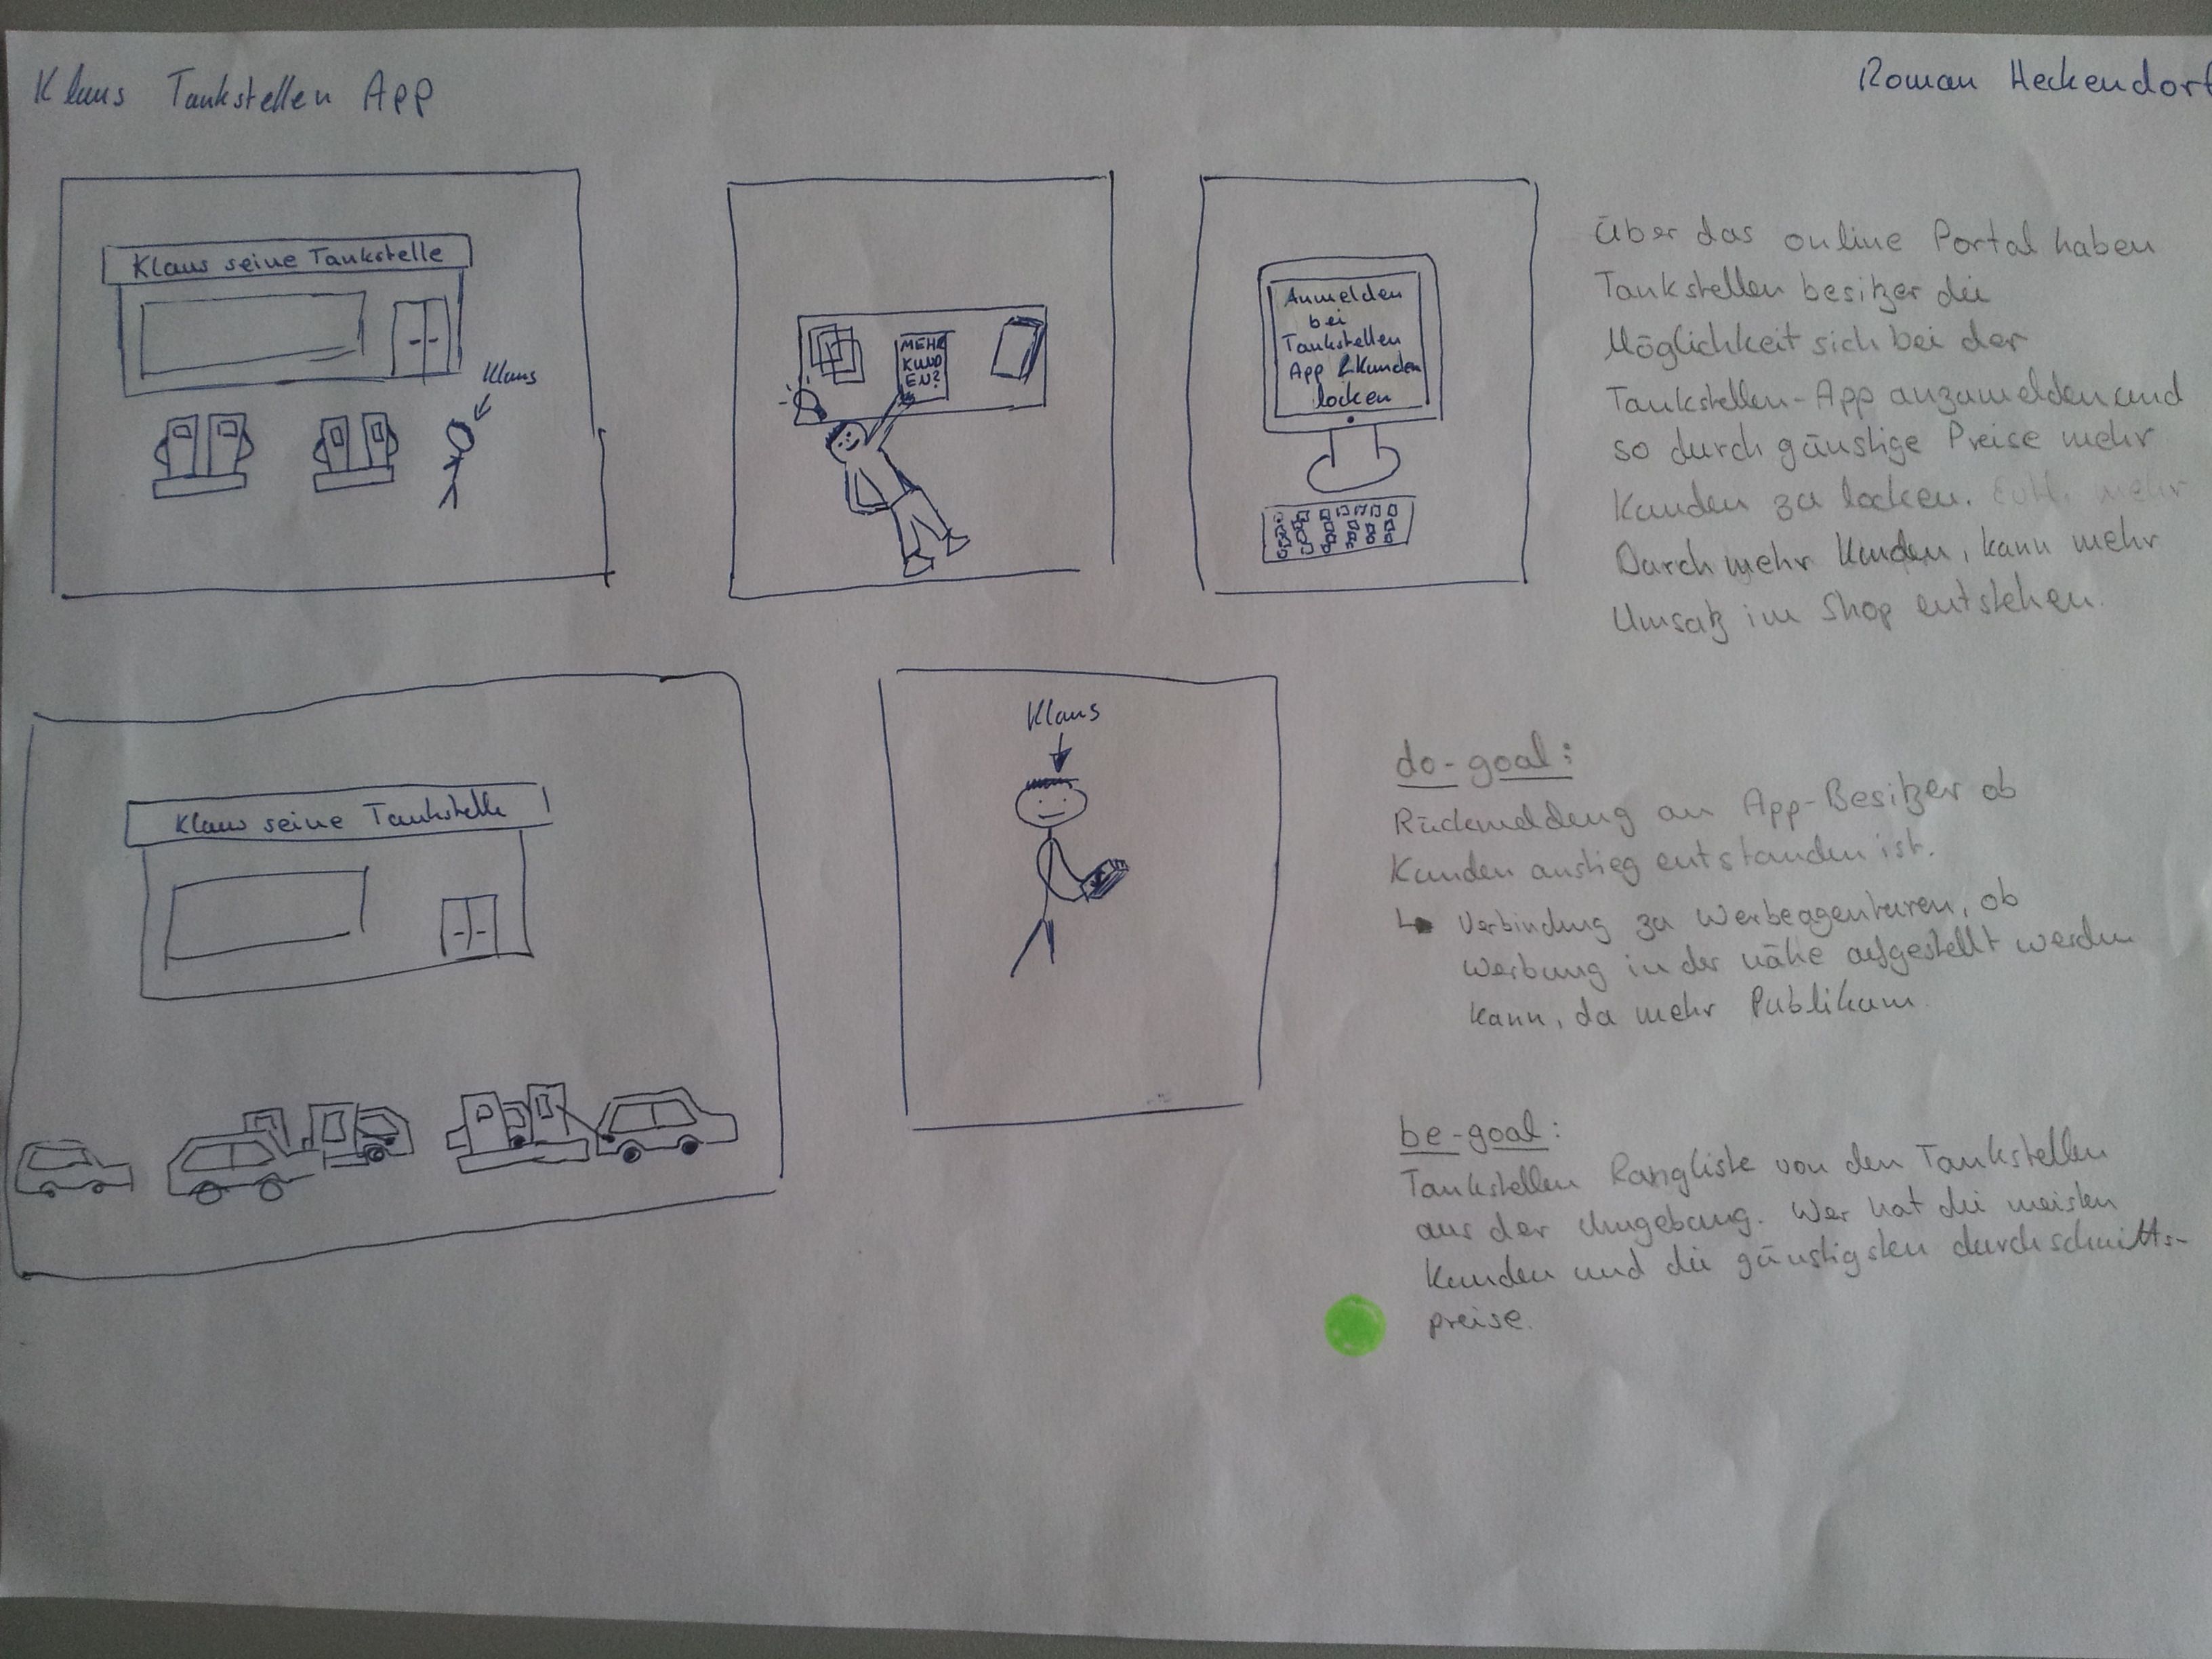 Klaus Tankstellen App
Roman Heckendorf
Klaus seine Tankstelle
Klaus
MEHR
KUND
EN?
Anmelden
bei
Tankstellen
App & Kunden
locken
Über das online Portal haben
Tankstellen besitzer die
Möglichkeit sich bei der
Tankstellen-App anzumelden und
so durch günstige Preise mehr
Kunden zu locken. mehr
Durch mehr Kunden, kann mehr
Umsatz im Shop entstehen.
Klaus seine Tankstelle
Klaus
do-goal:
Rückmeldung an App-Besitzer ob
Kunden anstieg entstanden ist.
↳ Verbindung zu Werbeagenturen, ob
Werbung in der nähe aufgestellt werden
kann, da mehr Publikum.
be-goal:
Tankstellen Rangliste von den Tankstellen
aus der Umgebung. Wer hat die meisten
Kunden und die günstigsten durchschnitts-
preise.